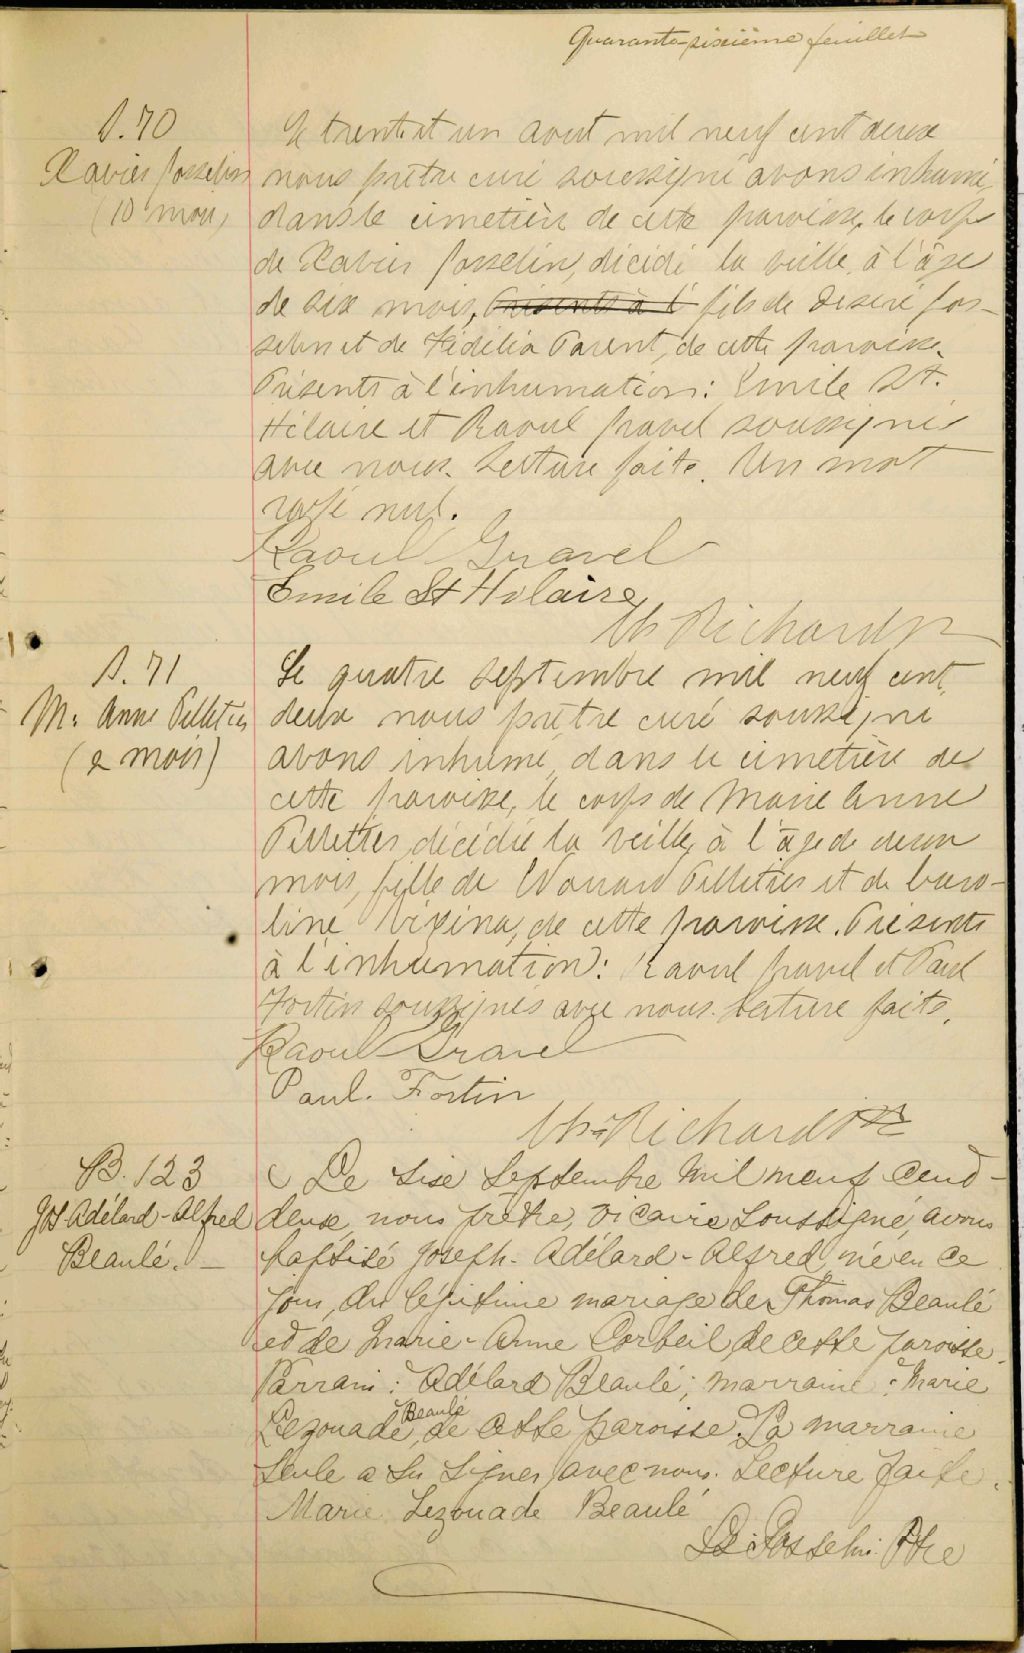 Quarante-sixième feuillet
S. 70
Xavier Josselin
(10 mois)
Le trente et un Aout mil neuf cent deux
nous prêtre curé soussigné avons inhumé,
dans le cimetière de cette paroisse, le corps
de Xavier Josselin, décédé la veille, à l'âge
de dix mois, Présents à l' fils de Désiré Jos-
selin et de Fidélia Parent, de cette paroisse.
Présents à l'inhumation: Emile St.
Hilaire et Raoul Gravel soussignés
avec nous. Lecture faite. Un mot
rayé nul.
Raoul Gravel
Emile St Hilaire
Th Richard ptr
S. 71
M. Anne Pelletier
(2 mois)
Le quatre septembre mil neuf cent
deux nous prêtre curé soussigné
avons inhumé, dans le cimetière de
cette paroisse, le corps de Marie Anne
Pelletier, décédée la veille, à l'âge de deux
mois, fille de Edouard Pelletier et de Caro-
line Vézina, de cette paroisse. Présents
à l'inhumation: Raoul Gravel et Paul
Fortin soussignés avec nous. Lecture faite.
Raoul Gravel
Paul. Fortin
Th Richard ptr
B. 123
Jos-Adélard-Alfred
Beaulé. —
Le Six Septembre Mil neuf Cent-
deux, nous prêtre, Vicaire Soussigné, avons
baptisé Joseph-Adélard-Alfred, né en ce
jour, du légitime mariage de Thomas Beaulé
et de Marie-Anne Corbeil, de cette paroisse.
Parrain: Adélard Beaulé; marraine: Marie
Lezouade Beaulé, de cette paroisse. La marraine
seule a su signer avec nous. Lecture faite.
Marie Lezouade Beaulé
Josselin Ptre